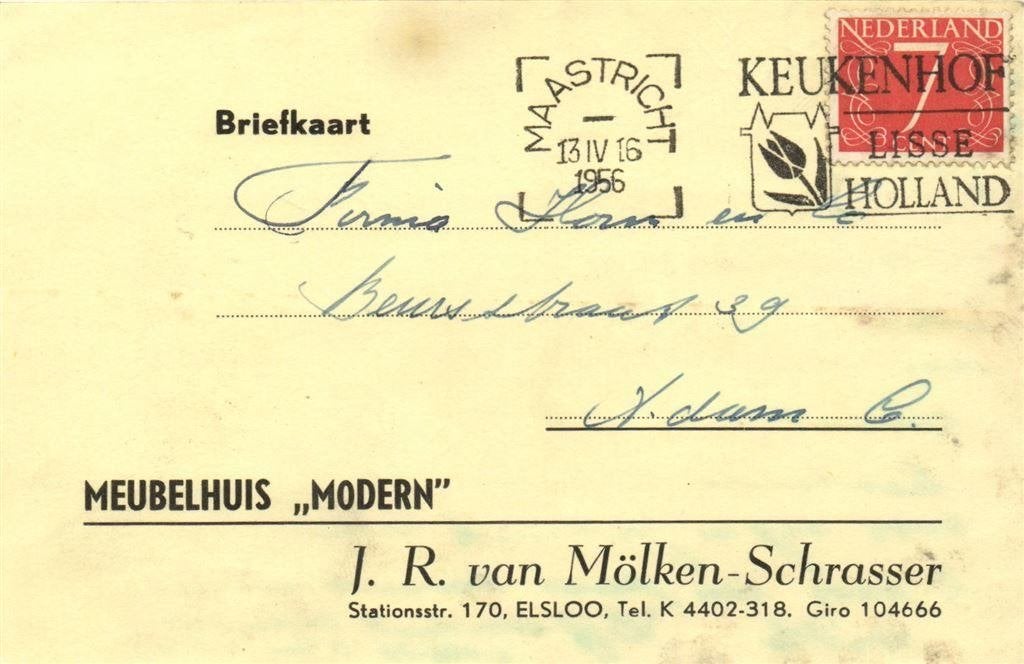 NEDERLAND
7
CENT
MAASTRICHT
13 IV 16
1956
KEUKENHOF
LISSE
HOLLAND
Briefkaart
Firma Horn en Co
Beursstraat 39
A.dam C.
MEUBELHUIS „MODERN”
J. R. van Mölken-Schrasser
Stationsstr. 170, ELSLOO, Tel. K 4402-318. Giro 104666